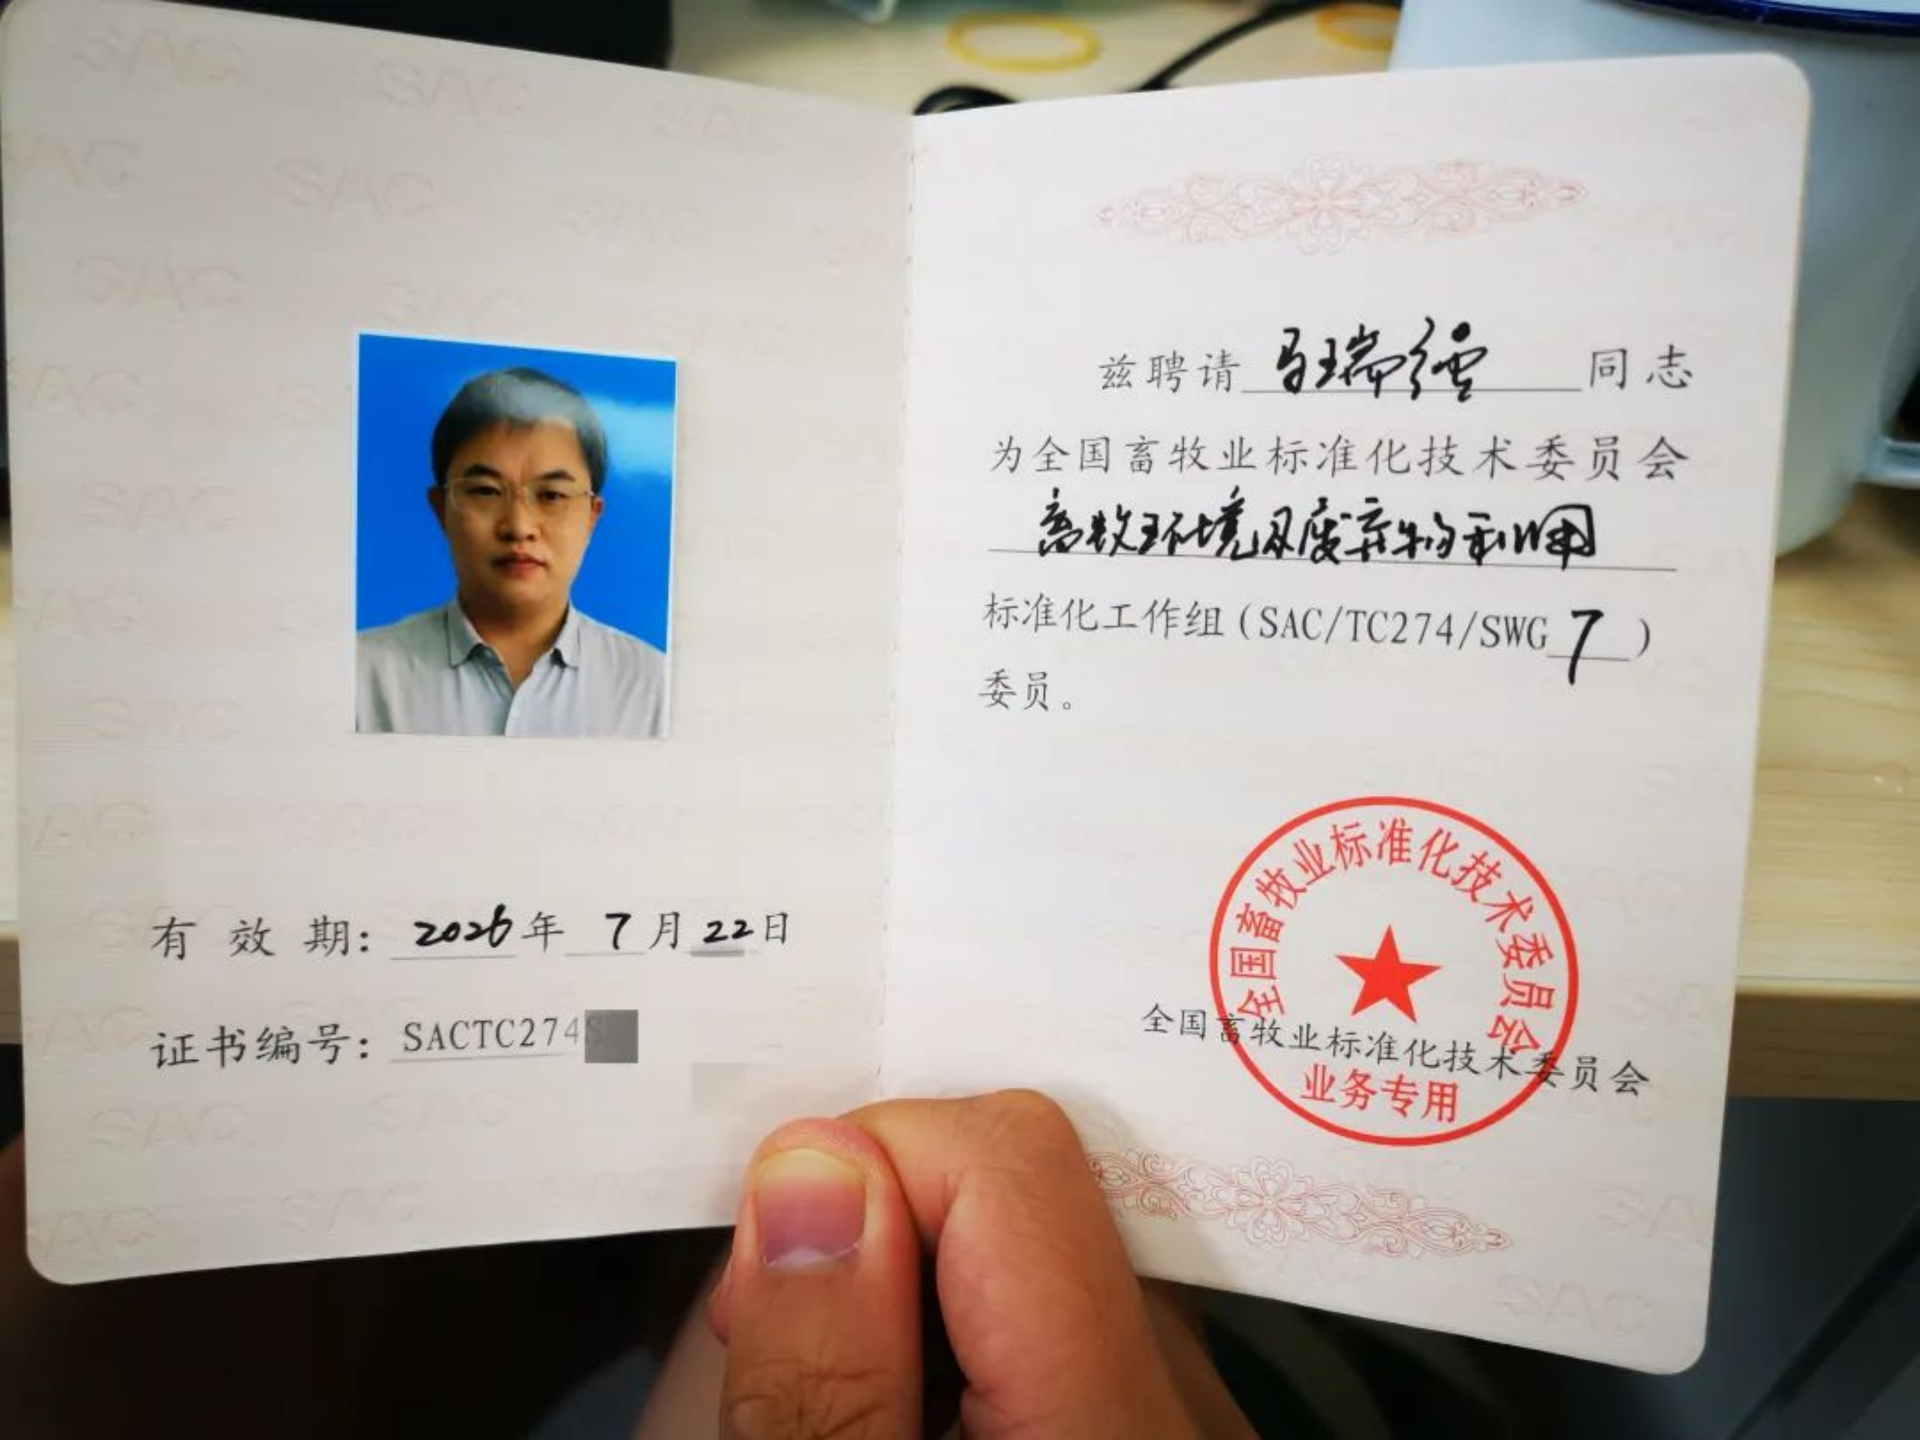 有效期：2026年7月22日
证书编号：SACTC274S
兹聘请马瑞强同志
为全国畜牧业标准化技术委员会
畜牧环境及废弃物利用
标准化工作组(SAC/TC274/SWG7)
委员。
全国畜牧业标准化技术委员会
业务专用
全国畜牧业标准化技术委员会
SAC